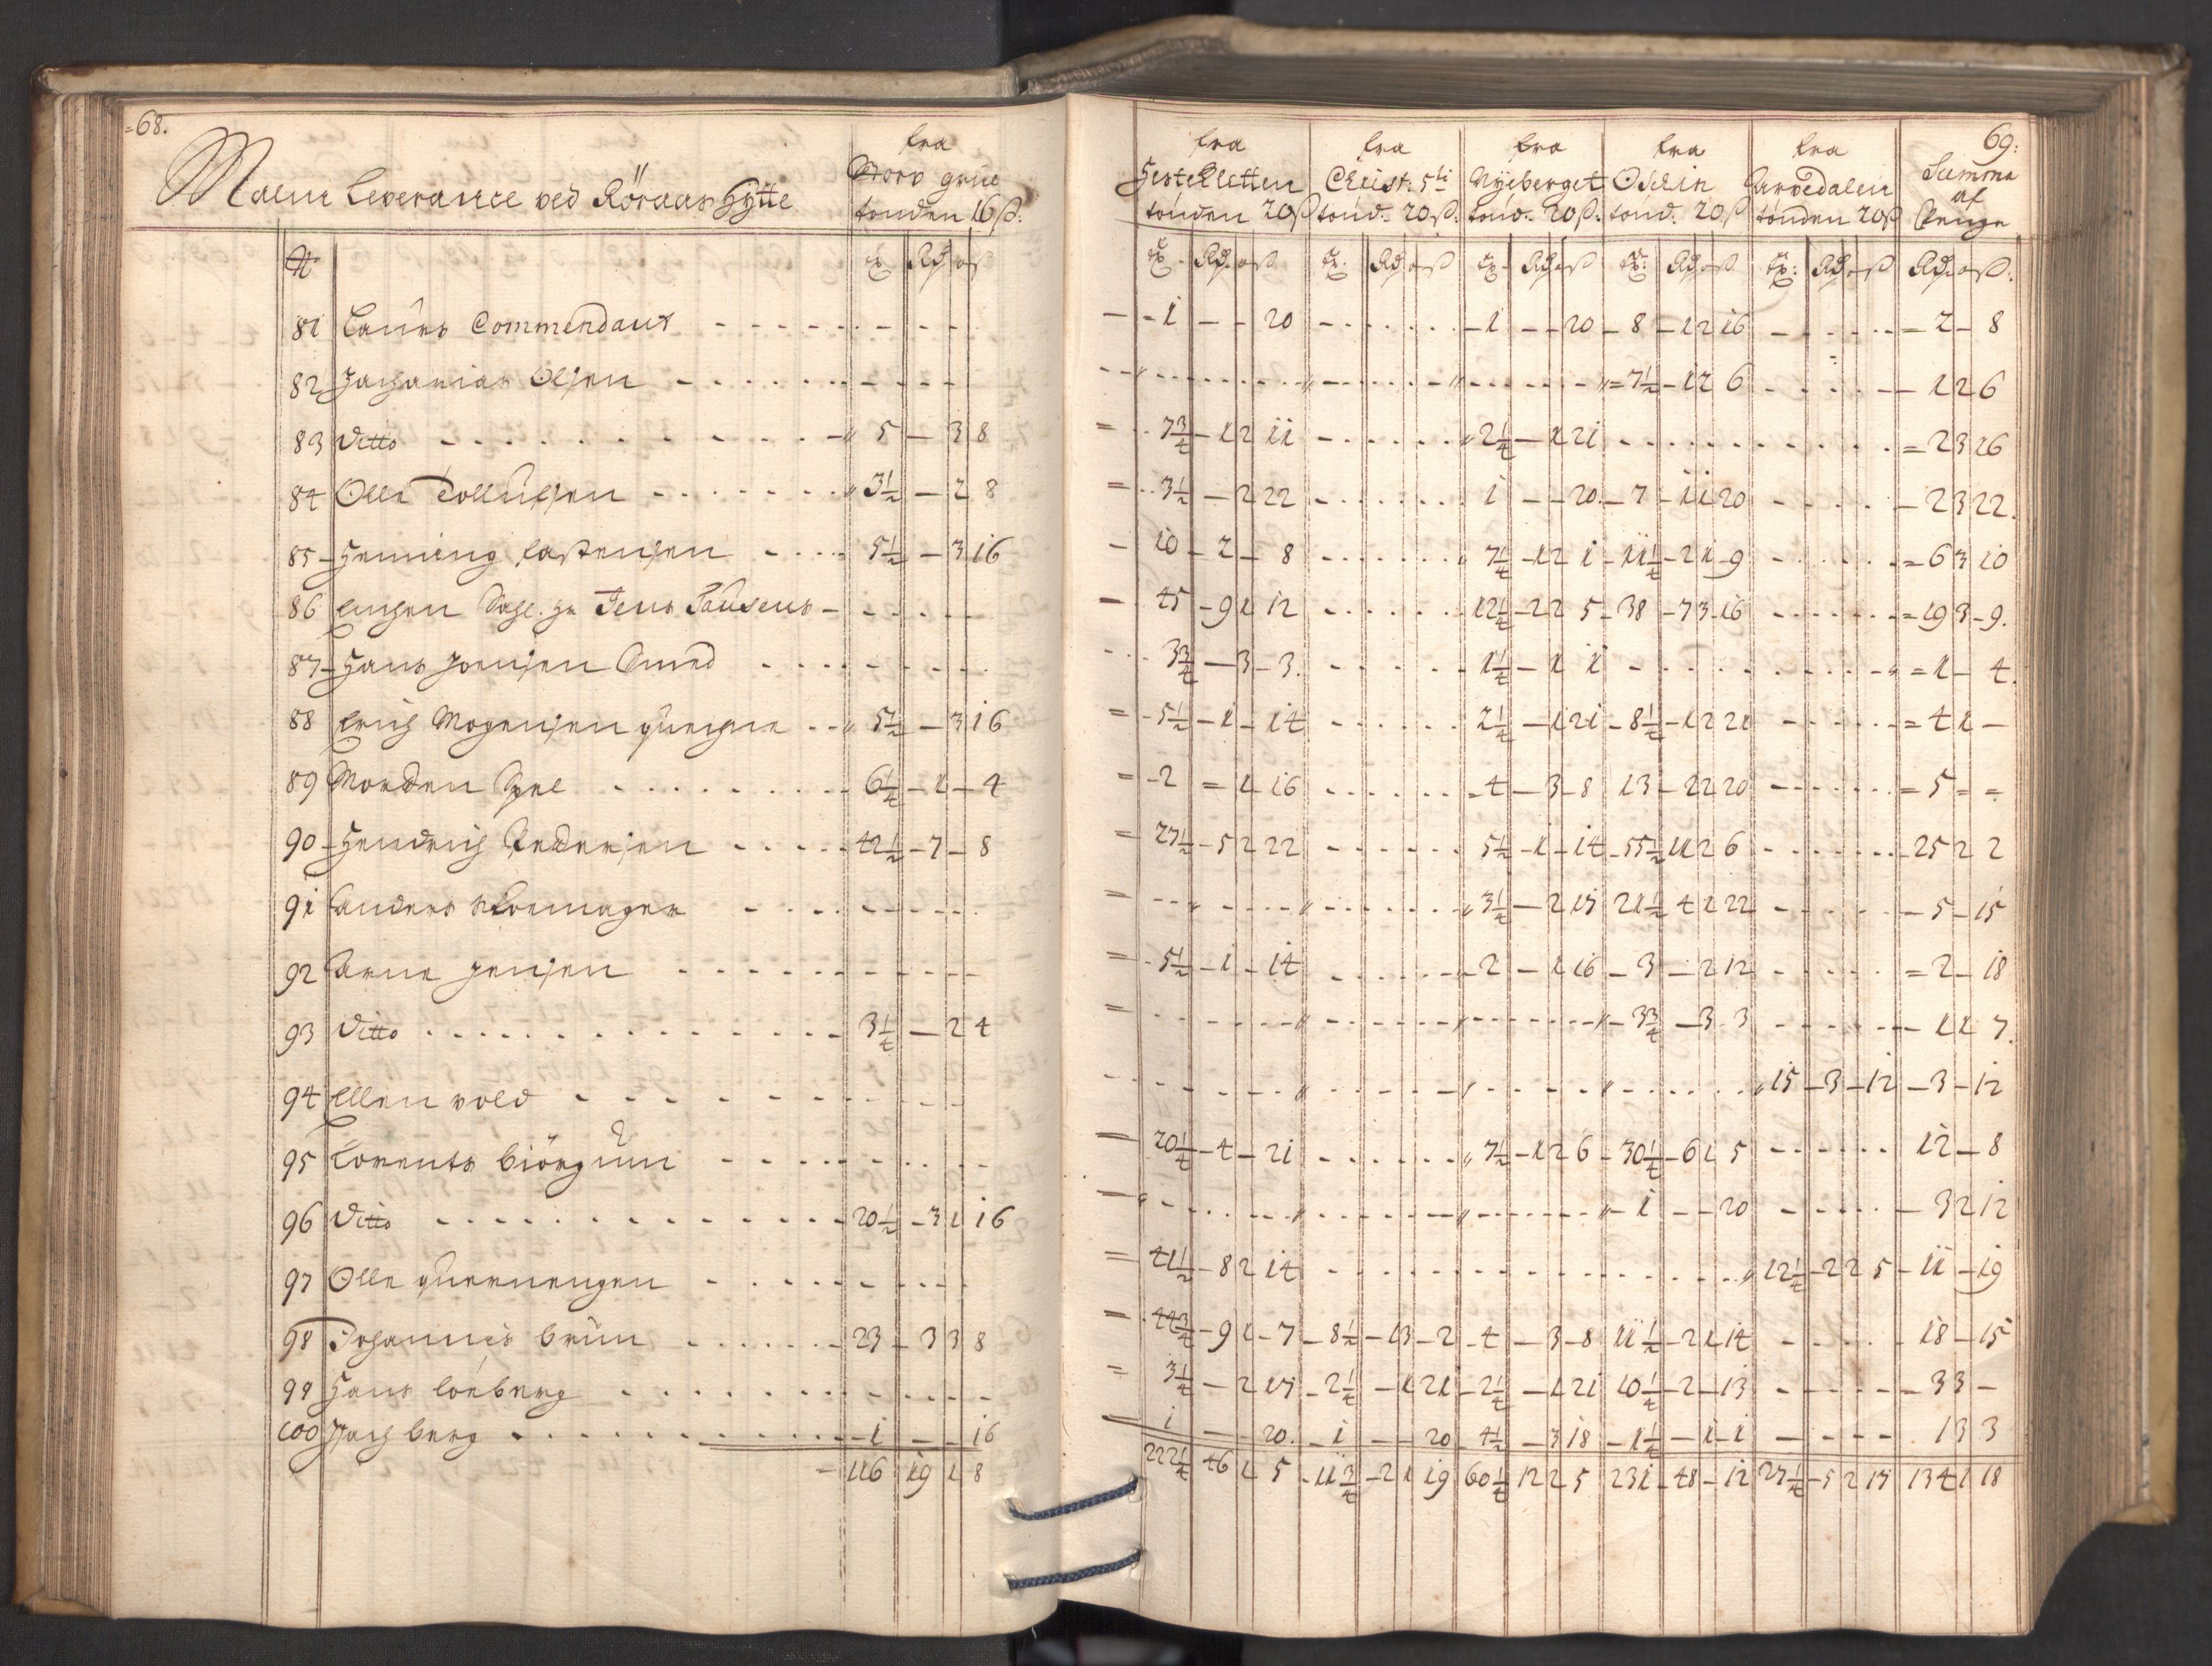 =68.
Malm Leverance ved Röraas Hÿtte
fra
Storv grue
tonden 16 ß:
fra
Hestekletten
tonden 20 ß
fra
Christ: 5ti
tond. 20 ß.
fra
Nÿeberget
tond. 20 ß.
fra
Oskin
tond. 20 ß
fra
Arvedalen
tonden 20 ß
69:
Summa
af
Penge
N
81 Laurs Commendant - 1 - - 20 - 1 - - 20 - 8 - 1 2 16 = 2 - 8
82 Zacharias Olsen = 7½ - 1 2 6 - 1 2 6
83 ditto 5 - 3 8 = 7¾ - 1 2 11 2¼ - 1 21 = 2 3 16
84 Olle Tollufsen 3½ - 2 8 = 3½ - 2 22 1 - - 20 - 7 - 1 1 20 - 2 3 22.
85 - Henning Castensen 5½ - 3 16 - 10 - 2 - 8 7¼ - 1 2 1 - 11¼ - 2 1 9 = 6 3 10
86 Sahl. Jens Pausens - - 45 - 9 1 12 12¼ - 2 2 5 - 38 - 7 3 16 = 19 3 - 9.
87 - Hans Joensen Smed 3¾ - 3 - 3. 1¼ - 1 1 = 1 - 4.
88 Erich Mogensen 5½ - 3 16 = 5½ - 1 - 14 2¼ - 1 21 - 8¼ - 1 2 21 = 4 1 -
89 Morten 6¼ - 1 - 4 = 2 = 1 16 - 4 - 3 - 8 13 - 2 2 20 = 5 = =
90 - Hendrich Pedersen 42½ - 7 - 8 = 27½ - 5 2 22 5½ - 1 - 14 - 55½ 11 2 6 - 25 2 2
91 Anders Skomager 3¼ - 2 17 21½ 4 1 22 - 5 - 15
92 Arne Jensen = 5½ - 1 - 14 - 2 - 1 16 - 3 - 2 12 = 2 - 18
93 ditto 3¼ - 2 4 = - 3¾ - 3 3 - 1 1 7.
94 Ellen vold 15 - 3 - 12 - 3 - 12
95 Lorents Biörgum 20¼ - 4 - 21 7½ - 1 2 6 - 30¼ - 6 1 5 12 - 8
96 ditto 20½ - 3 1 16 - 1 - - 20 - 3 2 12
97 Olle quernengen = 41½ - 8 2 14 12¼ - 2 2 5 - 11 - 19
98 Johannis brun 23 - 3 3 8 = 44¾ - 9 1 - 7 - 8½ - 1 3 - 2 - 4 - 3 - 8 11½ - 2 1 14 18 - 15
99 Hans = 3¼ - 2 17 - 2¼ - 1 21 - 2¼ - 1 21 10¼ - 2 - 13 - 3 3 -
100 berg - 1 - - 16 1 - - 20. - 1 - - 20 - 4½ - 3 18 - 1¼ - 1 - 1 1 3 3
- 116 19 1 8 222¼ 46 1 5 - 11¾ - 2 1 19 60¼ 12 2 5 231 - 48 - 12 27¼ - 5 2 17 134 1 18